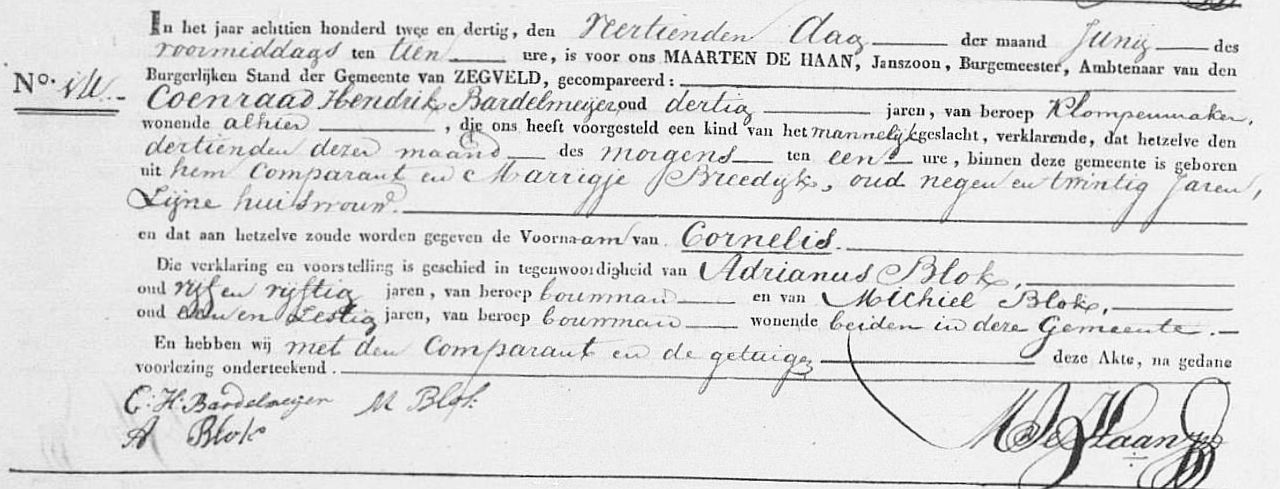 In het jaar achttien honderd twee en dertig, den veertienden dag der maand Junij des
voormiddags ten tien ure, is voor ons MAARTEN DE HAAN, Janszoon, Burgemeester, Ambtenaar van den
No. 14. Burgerlijken Stand der Gemeente van ZEGVELD, gecompareerd:
Coenraad Hendrik Bardelmeijer oud dertig jaren, van beroep Klompenmaker,
wonende alhier, die ons heeft voorgesteld een kind van het mannelijk geslacht, verklarende, dat hetzelve den
dertienden dezer maand des morgens ten een ure, binnen deze gemeente is geboren
uit hem Comparant en Marrigje Breedijk, oud negen en twintig Jaren,
Zijne huisvrouw.
en dat aan hetzelve zoude worden gegeven de Voornaam van Cornelis.
Die verklaring en voorstelling is geschied in tegenwoordigheid van Adrianus Blok,
oud vijf en vijftig jaren, van beroep bouwman en van Michiel Blok,
oud een en Zestig jaren, van beroep bouwman wonende beiden in deze Gemeente.
En hebben wij met den Comparant en de getuigen deze Akte, na gedane
voorlezing onderteekend.
C. H. Bardelmeijer M Blok
A Blok
M De Haan